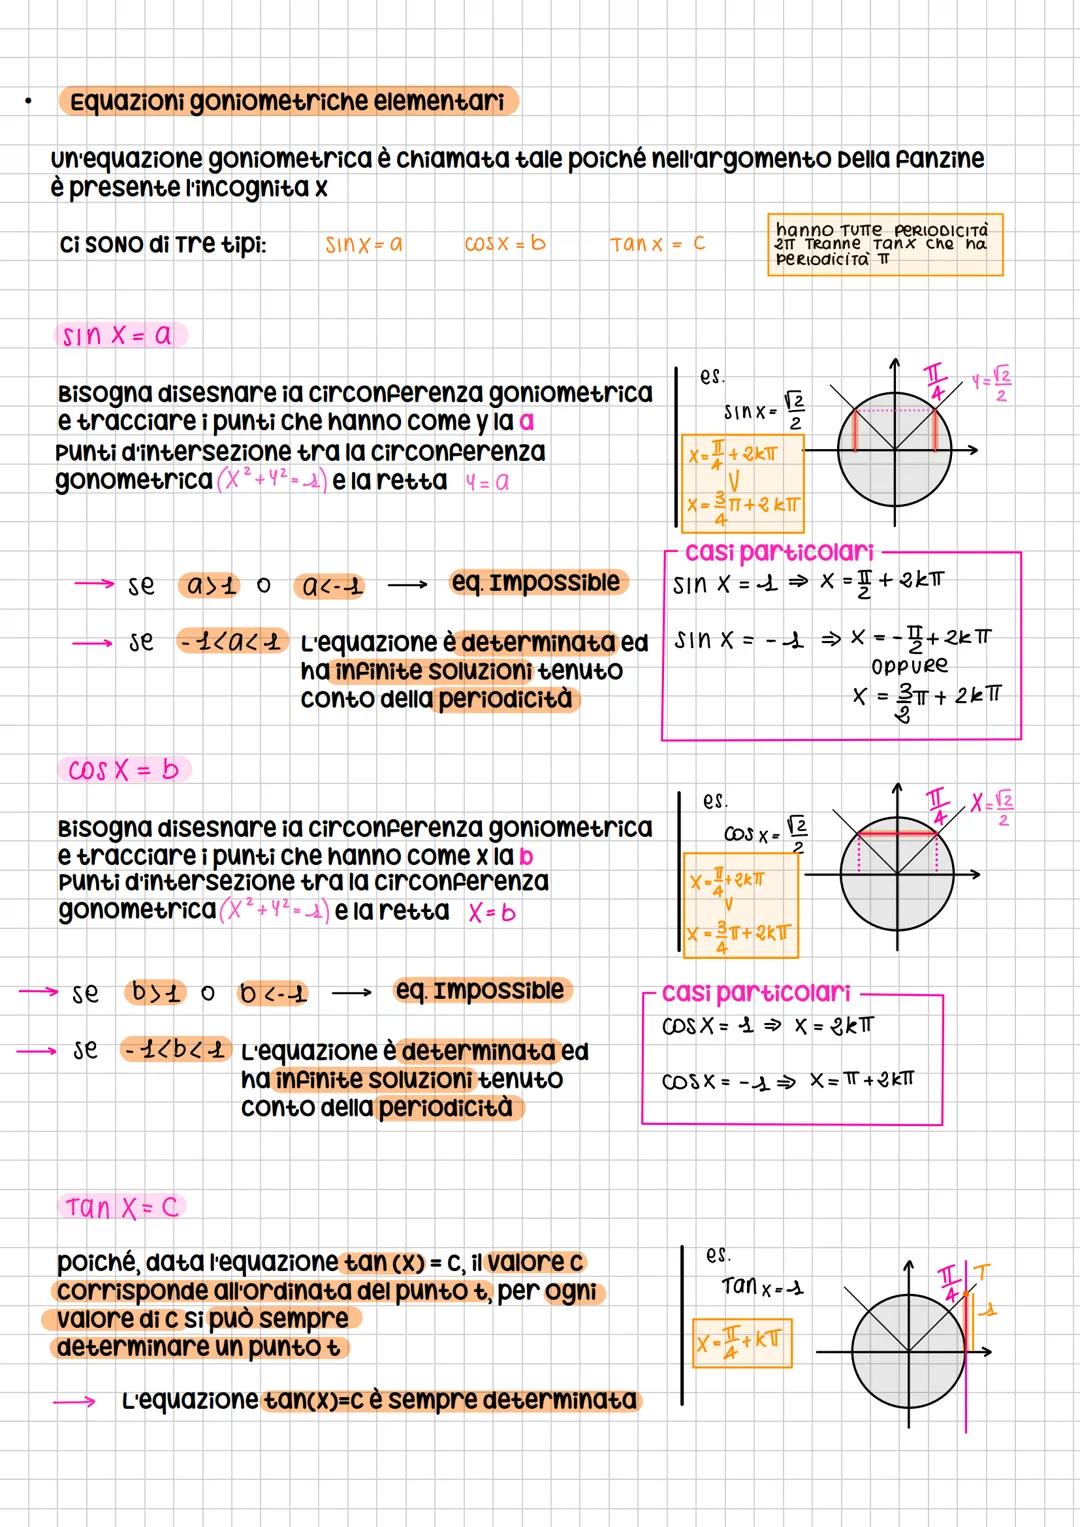 • Equazioni goniometriche elementari
un'equazione goniometrica è chiamata tale poiché nell'argomento Della fanzine
è presente l'incognita x
Ci SONO di Tre tipi: sin x = a cos x = b Tan x = C
hanno TUTTe PERIODICITÀ
2π TRanne Tanx che ha
PERIODICITÀ π
sin x = a
Bisogna disesnare ia circonferenza goniometrica
e tracciare i punti che hanno come y la a
Punti d'intersezione tra la circonferenza
gonometrica (x² + y² = 1) e la retta y = a
es.
sin x = √2/2
x = π/4 + 2kπ
V
x = 3/4 π + 2kπ
π/4 y = √2/2
→ se a>1 o a<-1 → eq. Impossible
→ se -1<a<1 L'equazione è determinata ed
ha infinite soluzioni tenuto
conto della periodicità
casi particolari
sin x = 1 ⇒ x = π/2 + 2kπ
sin x = -1 ⇒ x = -π/2 + 2kπ
OPPURE
x = 3/2 π + 2kπ
cos x = b
Bisogna disesnare ia circonferenza goniometrica
e tracciare i punti che hanno come x la b
Punti d'intersezione tra la circonferenza
gonometrica (x² + y² = 1) e la retta x = b
es.
cos x = √2/2
x = π/4 + 2kπ
V
x = 3/4 π + 2kπ
π/4 x = √2/2
→ se b>1 o b<-1 → eq. Impossible
→ se -1<b<1 L'equazione è determinata ed
ha infinite soluzioni tenuto
conto della periodicità
casi particolari
cos x = 1 ⇒ x = 2kπ
cos x = -1 ⇒ x = π + 2kπ
Tan x = C
poiché, data l'equazione tan (x) = c, il valore c
corrisponde all'ordinata del punto t, per ogni
valore di c si può sempre
determinare un punto t
→ L'equazione tan(x)=c è sempre determinata
es.
Tan x = 1
x = π/4 + kπ
π/4 T
1